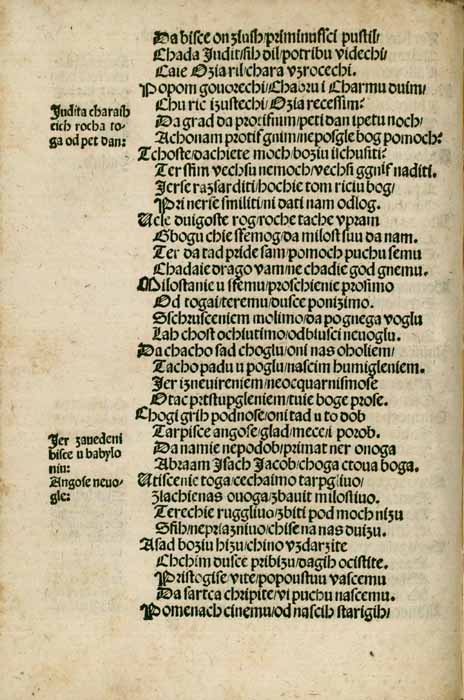 Da bisce on zlush/priminufsci pustil/
Chada Judit/sih dil/potribu videchi/
Caie Ozia ril/chara vzrocechi.
Popom govorechi/Chabru i Charmu duim/
Chu ric izustechi/Ozia recessim?
Da grad da protifum/peti dan ipetu noch/
Achonam protif gnim/ne posgle bog pomoch?
Judita charash
cich rocha to/
ga od pet dan:
Tchoste/dachiete moch/boziu ischusiti?
Ter sfim vechsu nemoch/vechsi ggnif naditi.
Jerse razsarditi/hochie tom riciu bog/
Pri nerse smiliti/ni dati nam odlog.
Ucle duigoste rog/roche tache vpram
Gbogu chie stemog/da milost suu da nam.
Ter da tad pride sam/pomoch puchu semu
Chadaie drago vam/ne chadie god gnemu.
Milostanie u sfemu/proschienie prosimo
Od togai/teremu/dusce ponizimo.
Sschrusceniem molimo/da pognega voglu
Lah chost ochiutimo/odbiusci nevoglu.
Da chacho sad choglu/oni nas oholiem/
Tacho padu u poglu/nascim humigleniem.
Jer izneuireniem/neocquarnismose
Otac prestupgleniem/tuie boge prose.
Chogi grih podnose/oni tad u to dob
Tarpisce angose/glad/mece/i porob.
Da namie nepodob/primat ner onoga
Abraam Isach Jacob/choga ctoua boga.
Jer zavedeni
bisce u babylo
niu:
Angose nevo/
gle:
Utiscenie toga/cechaimo tarpgliuo/
Zlachienas ovoga/zbavit milostiuo.
Terechie ruggliuo/zbiti pod moch nizu
Sfih/nepriazniuo/chise na nas duizu.
A sad boziu hizu/chino vzdarzite
Chchim dusce pribizu/dagih ocistite.
Pristogise/vite/popoustuu vascemu
Da sartca chripite/vi puchu nascemu.
Pomenach cinemu/od nascih starigih/